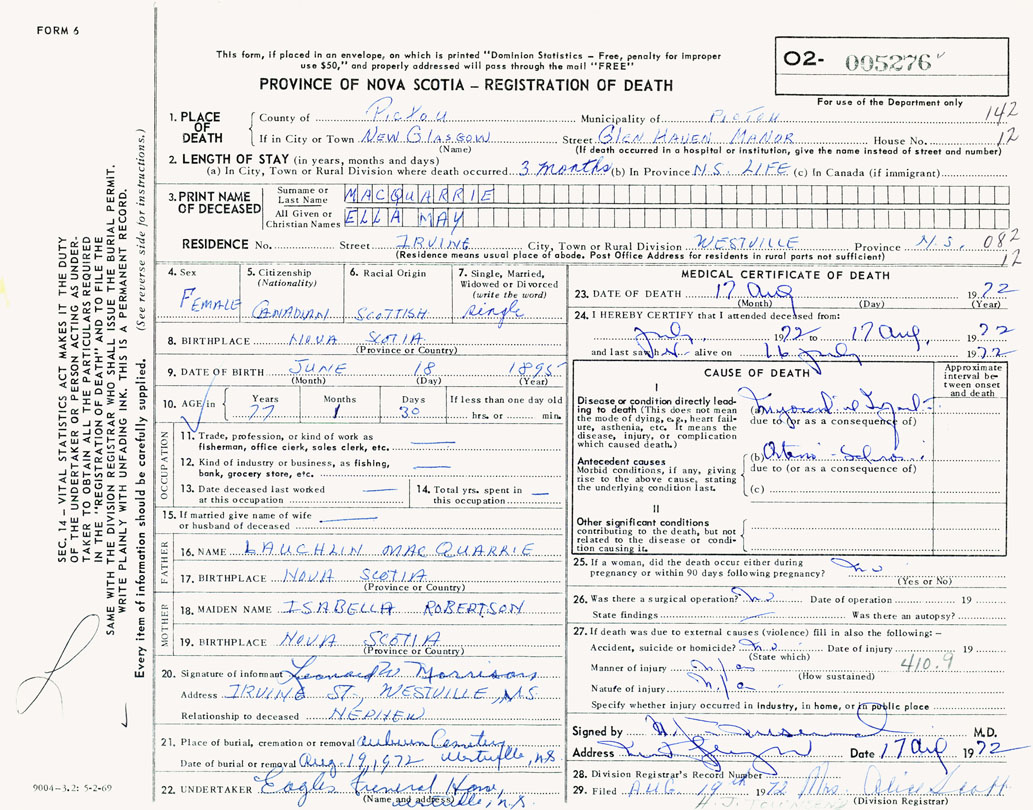 FORM 6
This form, if placed in an envelope, on which is printed "Dominion Statistics – Free, penalty for improper
use $50," and properly addressed will pass through the mail "FREE"
O2- 005276
For use of the Department only
PROVINCE OF NOVA SCOTIA – REGISTRATION OF DEATH
1. PLACE OF DEATH
County of Pictou Municipality of Pictou 142
If in City or Town NEW GLASGOW Street GLEN HAVEN MANOR House No. 12
(Name) (If death occurred in a hospital or institution, give the name instead of street and number)
2. LENGTH OF STAY (in years, months and days)
(a) In City, Town or Rural Division where death occurred 3 months (b) In Province N.S. LIFE (c) In Canada (if immigrant)
3. PRINT NAME OF DECEASED
Surname or Last Name MACQUARRIE
All Given or Christian Names ELLA MAY
RESIDENCE No. Street IRVINE City, Town or Rural Division WESTVILLE Province N.S. 082
(Residence means usual place of abode. Post Office Address for residents in rural parts not sufficient) 12
4. Sex FEMALE
5. Citizenship (Nationality) CANADIAN
6. Racial Origin SCOTTISH
7. Single, Married, Widowed or Divorced (write the word) single
8. BIRTHPLACE NOVA SCOTIA
(Province or Country)
9. DATE OF BIRTH JUNE 18 1895
(Month) (Day) (Year)
10. AGE in Years 77 Months 1 Days 30 If less than one day old hrs. or min.
OCCUPATION
11. Trade, profession, or kind of work as
fisherman, office clerk, sales clerk, etc.
12. Kind of industry or business, as fishing,
bank, grocery store, etc.
13. Date deceased last worked
at this occupation
14. Total yrs. spent in
this occupation
15. If married give name of wife
or husband of deceased
FATHER
16. NAME LAUCHLIN MACQUARRIE
17. BIRTHPLACE NOVA SCOTIA
(Province or Country)
MOTHER
18. MAIDEN NAME ISABELLA ROBERTSON
19. BIRTHPLACE NOVA SCOTIA
(Province or Country)
20. Signature of informant Leonard W Morrison
Address IRVINE ST, WESTVILLE, N.S.
Relationship to deceased NEPHEW
21. Place of burial, cremation or removal Auburn Cemetery Westville, N.S.
Date of burial or removal Aug. 19, 1972
22. UNDERTAKER Eagles Funeral Home,
(Name and address) Westville, N.S.
MEDICAL CERTIFICATE OF DEATH
23. DATE OF DEATH 17 Aug 1972
(Month) (Day) (Year)
24. I HEREBY CERTIFY that I attended deceased from:
July 1972 to 17 Aug, 1972
and last saw h alive on 16 July 1972
CAUSE OF DEATH
Approximate interval between onset and death
I
Disease or condition directly leading to death (This does not mean the mode of dying, e.g., heart failure, asthenia, etc. It means the disease, injury, or complication which caused death.)
(a) Myocardial Infarct
due to (or as a consequence of)
Antecedent causes
Morbid conditions, if any, giving rise to the above cause, stating the underlying condition last.
(b)
due to (or as a consequence of)
(c)
II
Other significant conditions
contributing to the death, but not related to the disease or condition causing it.
25. If a woman, did the death occur either during
pregnancy or within 90 days following pregnancy? no
(Yes or No)
26. Was there a surgical operation? no Date of operation 19
State findings Was there an autopsy?
27. If death was due to external causes (violence) fill in also the following: –
Accident, suicide or homicide? no Date of injury 19
(State which) 410.9
Manner of injury n/a
(How sustained)
Nature of injury n/a
Specify whether injury occurred in industry, in home, or in public place
Signed by M.D.
Address Date 17 Aug 1972
28. Division Registrar's Record Number
29. Filed AUG. 19th 1972 Mrs. Alice Scott
(Division Registrar)
SEC. 14 – VITAL STATISTICS ACT MAKES IT THE DUTY
OF THE UNDERTAKER OR PERSON ACTING AS UNDER-
TAKER TO OBTAIN ALL THE PARTICULARS REQUIRED
IN THE "REGISTRATION OF DEATH" AND TO FILE THE
SAME WITH THE DIVISION REGISTRAR WHO SHALL ISSUE THE BURIAL PERMIT.
WRITE PLAINLY WITH UNFADING INK. THIS IS A PERMANENT RECORD.
Every item of information should be carefully supplied. (See reverse side for instructions.)
9004–3.2: 5-2-69